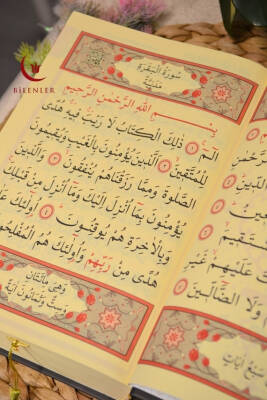 BİLENLER
سُورَةُ الْبَقَرَةِ
مَدَنِيَّةٌ
بِسْمِ اللهِ الرَّحْمٰنِ الرَّحِيمِ
الٓمٓ ۝١ ذٰلِكَ الْكِتَابُ لَا رَيْبَ فِيهِ هُدًى
لِلْمُتَّقِينَ ۝٢ الَّذِينَ يُؤْمِنُونَ بِالْغَيْبِ وَيُقِيمُونَ
الصَّلٰوةَ وَمِمَّا رَزَقْنَاهُمْ يُنْفِقُونَ ۝٣ وَالَّذِينَ
يُؤْمِنُونَ بِمَا أُنْزِلَ إِلَيْكَ وَمَا أُنْزِلَ مِنْ قَبْلِكَ
وَبِالْآخِرَةِ هُمْ يُوقِنُونَ ۝٤ أُولٰئِكَ عَلٰى
هُدًى مِنْ رَبِّهِمْ وَأُولٰئِكَ هُمُ الْمُفْلِحُونَ
وَهِيَ مِائَتَانِ
وَسِتٌّ وَثَمَانُونَ آيَةً
عَلَيْهِمْ
وَلَا الضَّالِّينَ
سَبْعُ آيَاتٍ